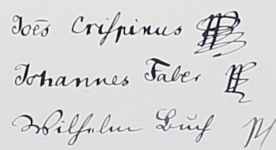 Joēs Crispinus
Johannes Faber
Wilhelm Buch